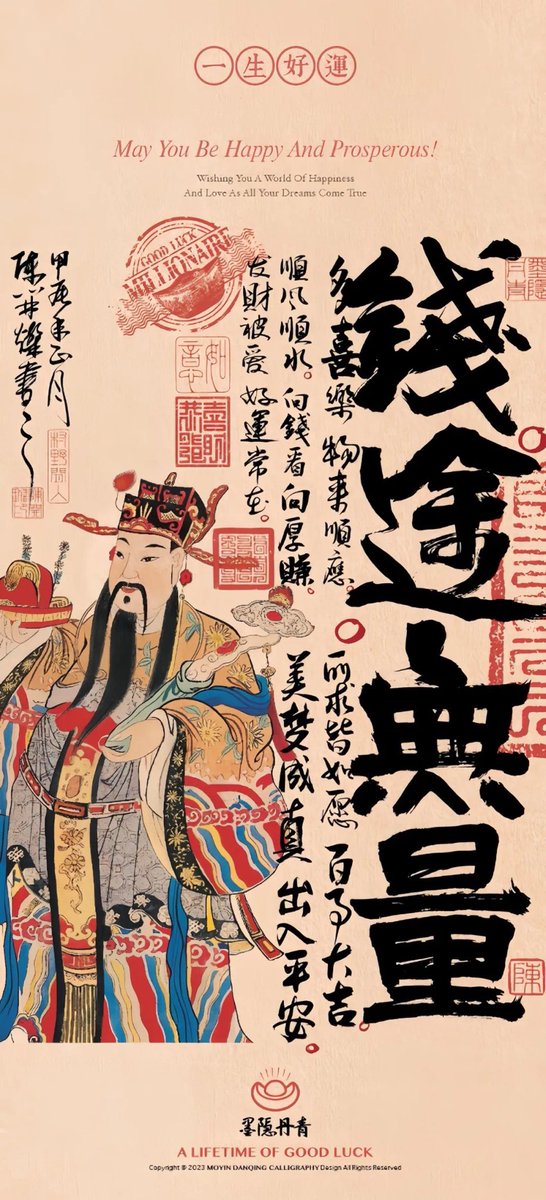 一生好運
May You Be Happy And Prosperous!
Wishing You A World Of Happiness
And Love As All Your Dreams Come True
錢途無量
多喜樂 物来順應。
所求皆如愿 百事大吉。
順风順水。向錢看 向厚賺。
美梦成真 出入平安。
发財被爱 好運常在。
甲辰年正月
GOOD LUCK
MILLIONAIRE
如意
村野閑人
陳
墨隱丹青
A LIFETIME OF GOOD LUCK
Copyright ® 2023 MOYIN DANQING CALLIGRAPHY Design All Rights Reserved